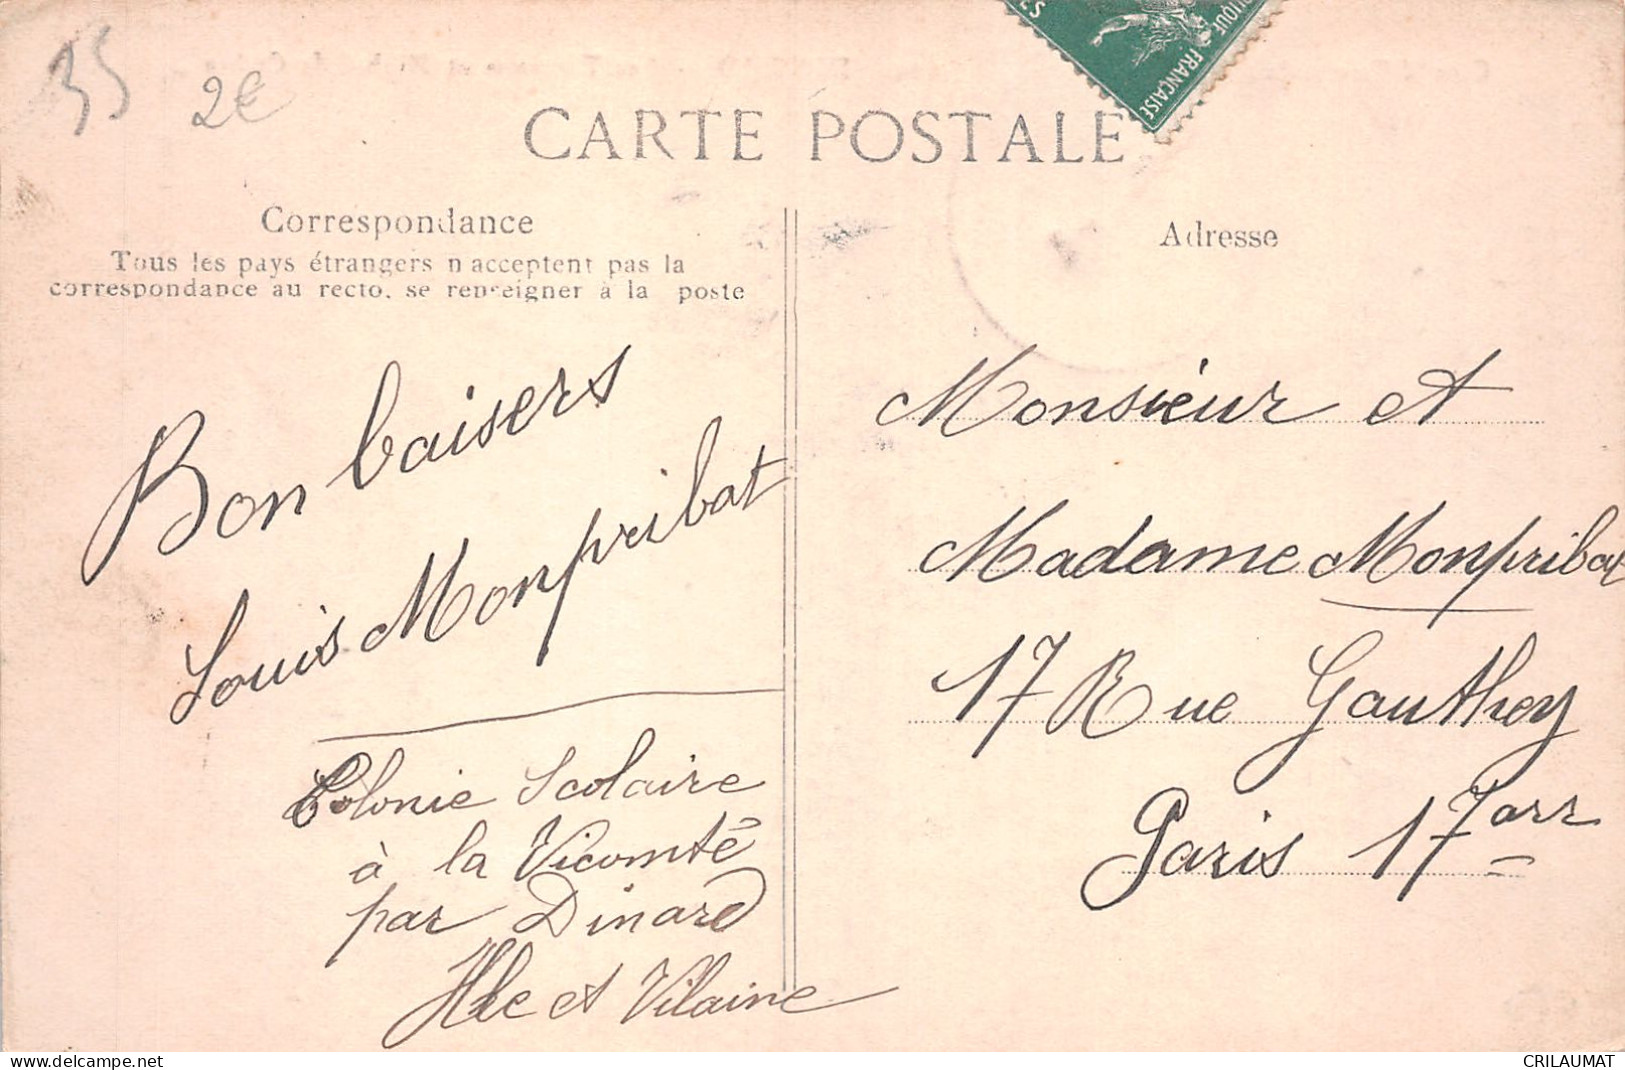 35
2€
CARTE POSTALE
RÉPUBLIQUE FRANÇAISE
Correspondance
Tous les pays étrangers n'acceptent pas la
correspondance au recto, se renseigner à la poste
Bon baisers
Louis Monpribat
Colonie Scolaire
à la Vicomté
par Dinard
Ille et Vilaine
Adresse
Monsieur et
Madame Monpribat
17 Rue Gauthey
Paris 17 arr
www.delcampe.net
CRILAUMAT